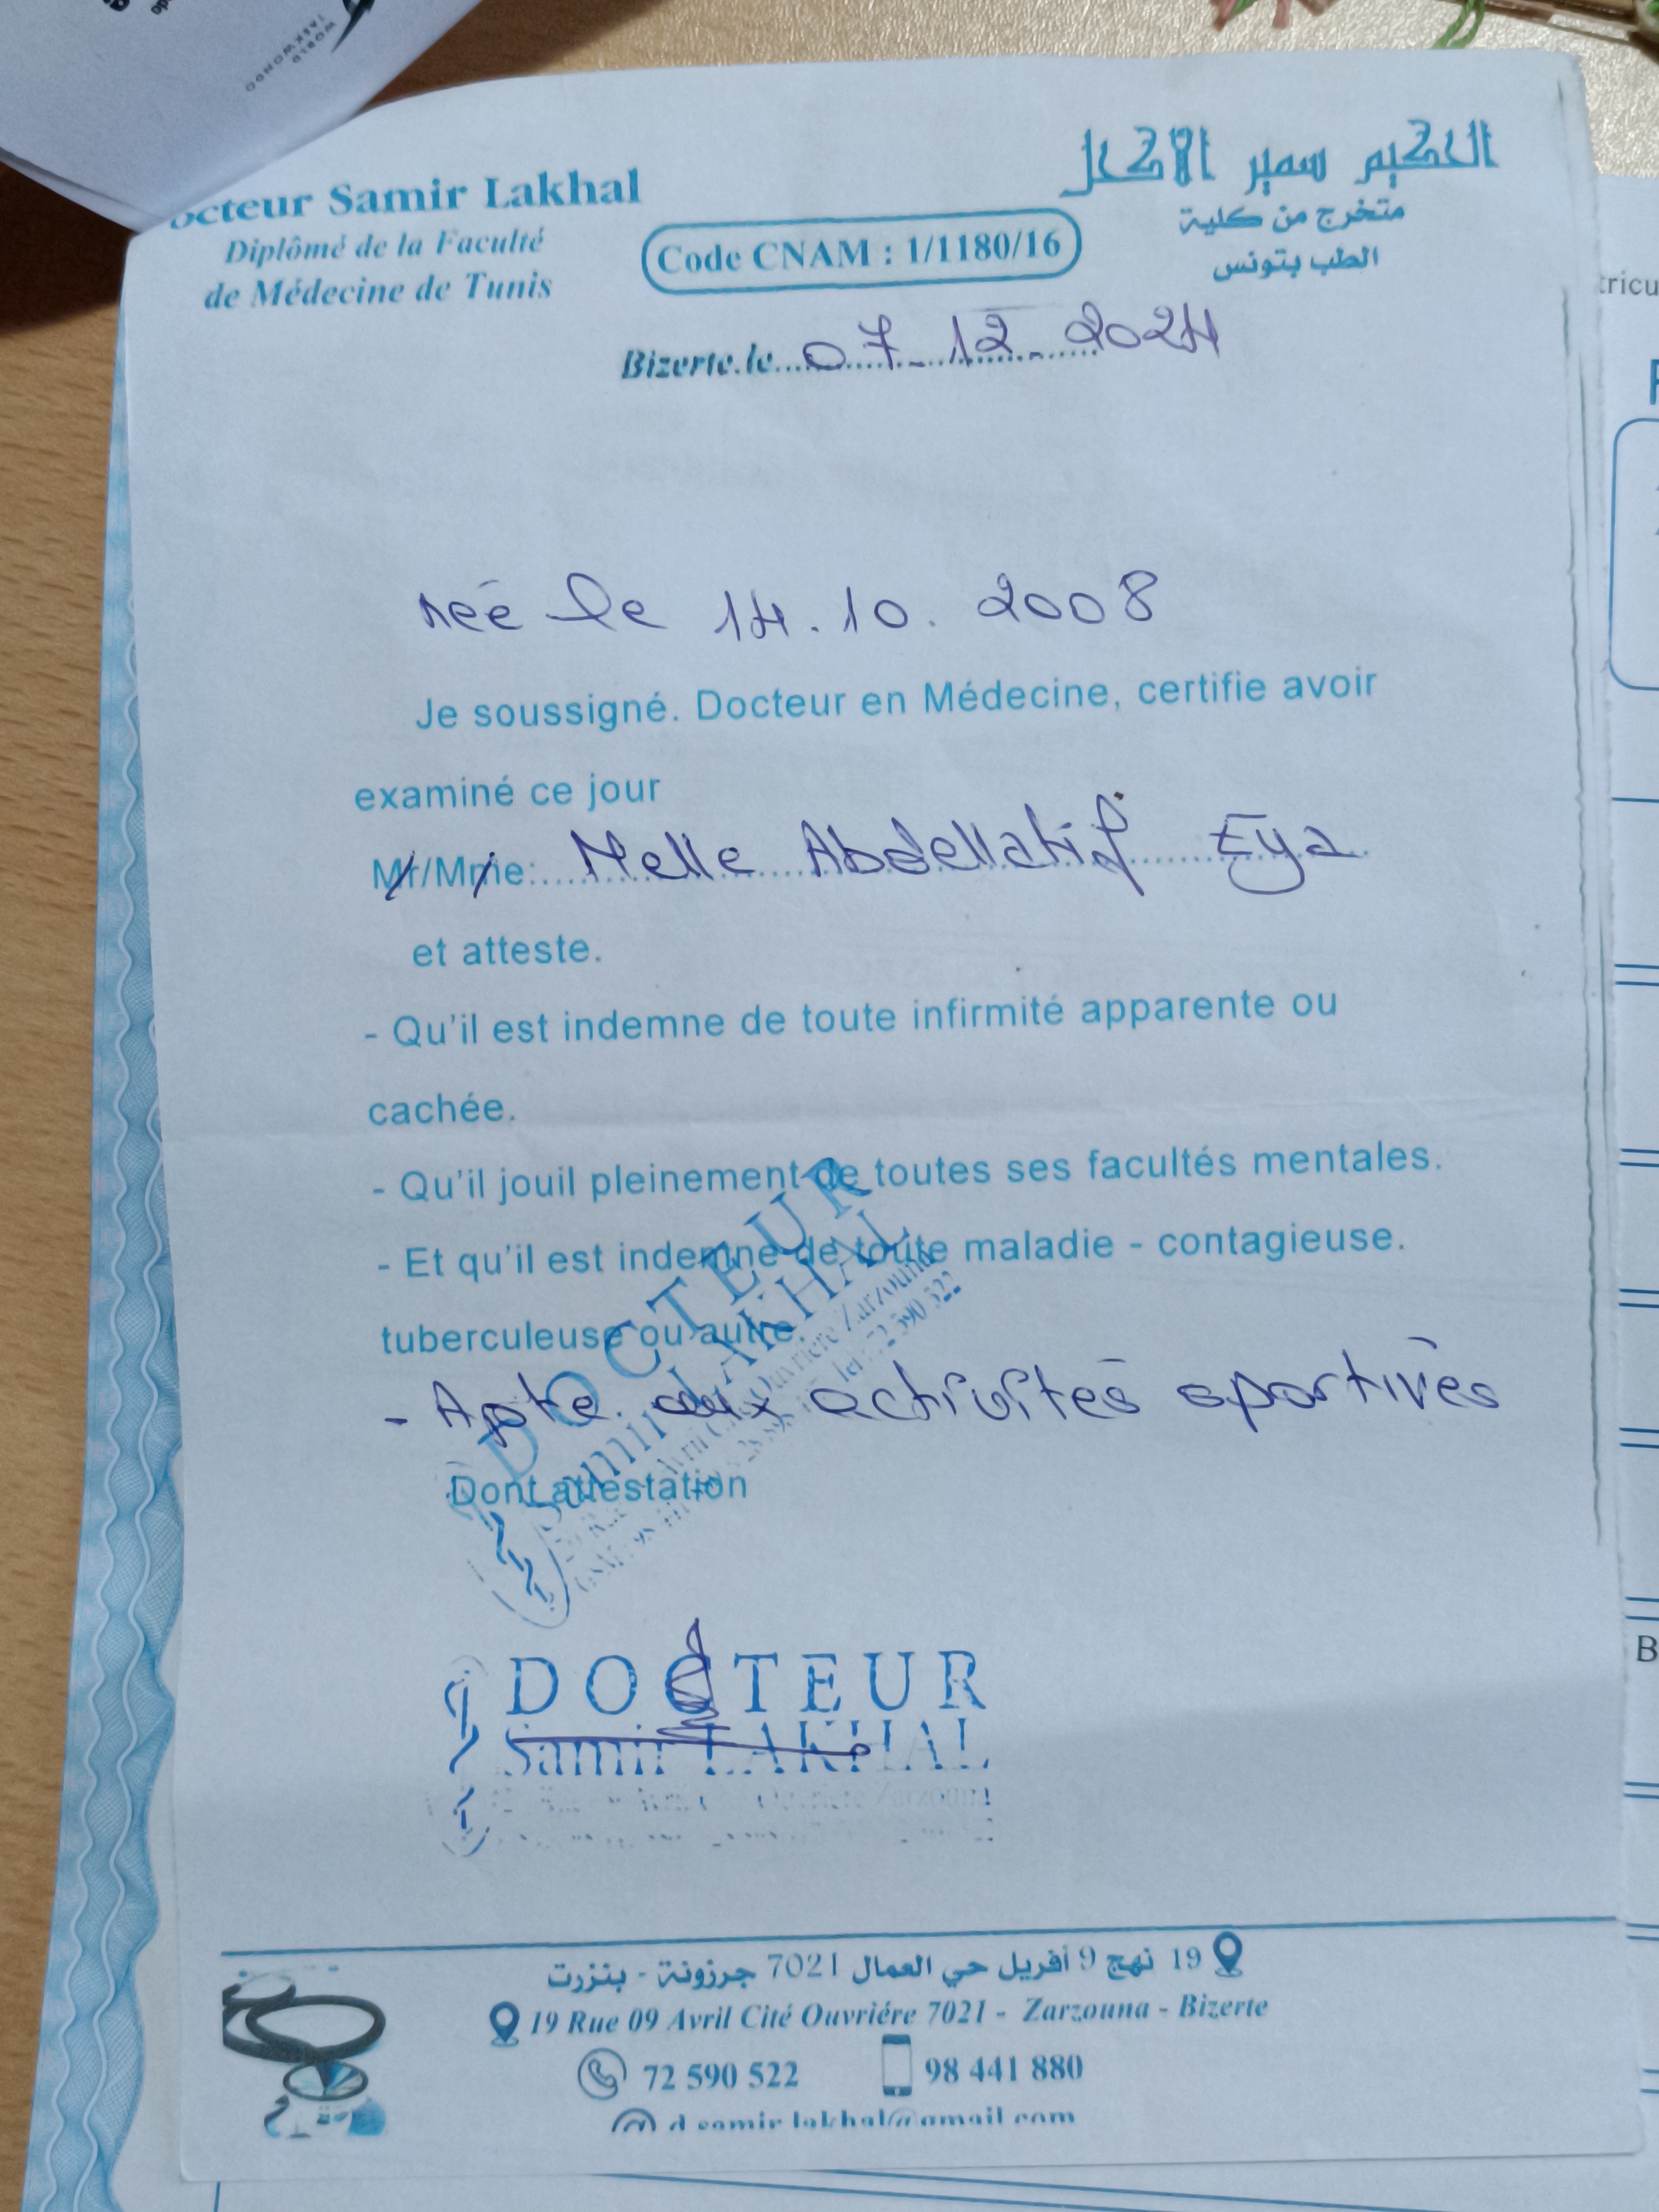 WORLD
TAEKWONDO
Docteur Samir Lakhal
Diplômé de la Faculté
de Médecine de Tunis
Code CNAM : 1/1180/16
الحكيم سمير الأكحل
متخرج من كلية
الطب بتونس
Bizerte.le 07-12-2024
née le 14.10.2008
Je soussigné. Docteur en Médecine, certifie avoir
examiné ce jour
Mr/Mme: Melle Abdellatif Eya
et atteste.
- Qu'il est indemne de toute infirmité apparente ou
cachée.
- Qu'il jouil pleinement de toutes ses facultés mentales.
- Et qu'il est indemne de toute maladie - contagieuse.
tuberculeuse ou autre.
- Apte aux activités sportives
Dont attestation
DOCTEUR
Samir LAKHAL
Ouvrière Zarzouna
72 590 522
DOCTEUR
Samir LAKHAL
Zarzouna
19 نهج 9 أفريل حي العمال 7021 جرزونة - بنزرت
19 Rue 09 Avril Cité Ouvriére 7021 - Zarzouna - Bizerte
72 590 522
98 441 880
d.samir.lakhal@gmail.com